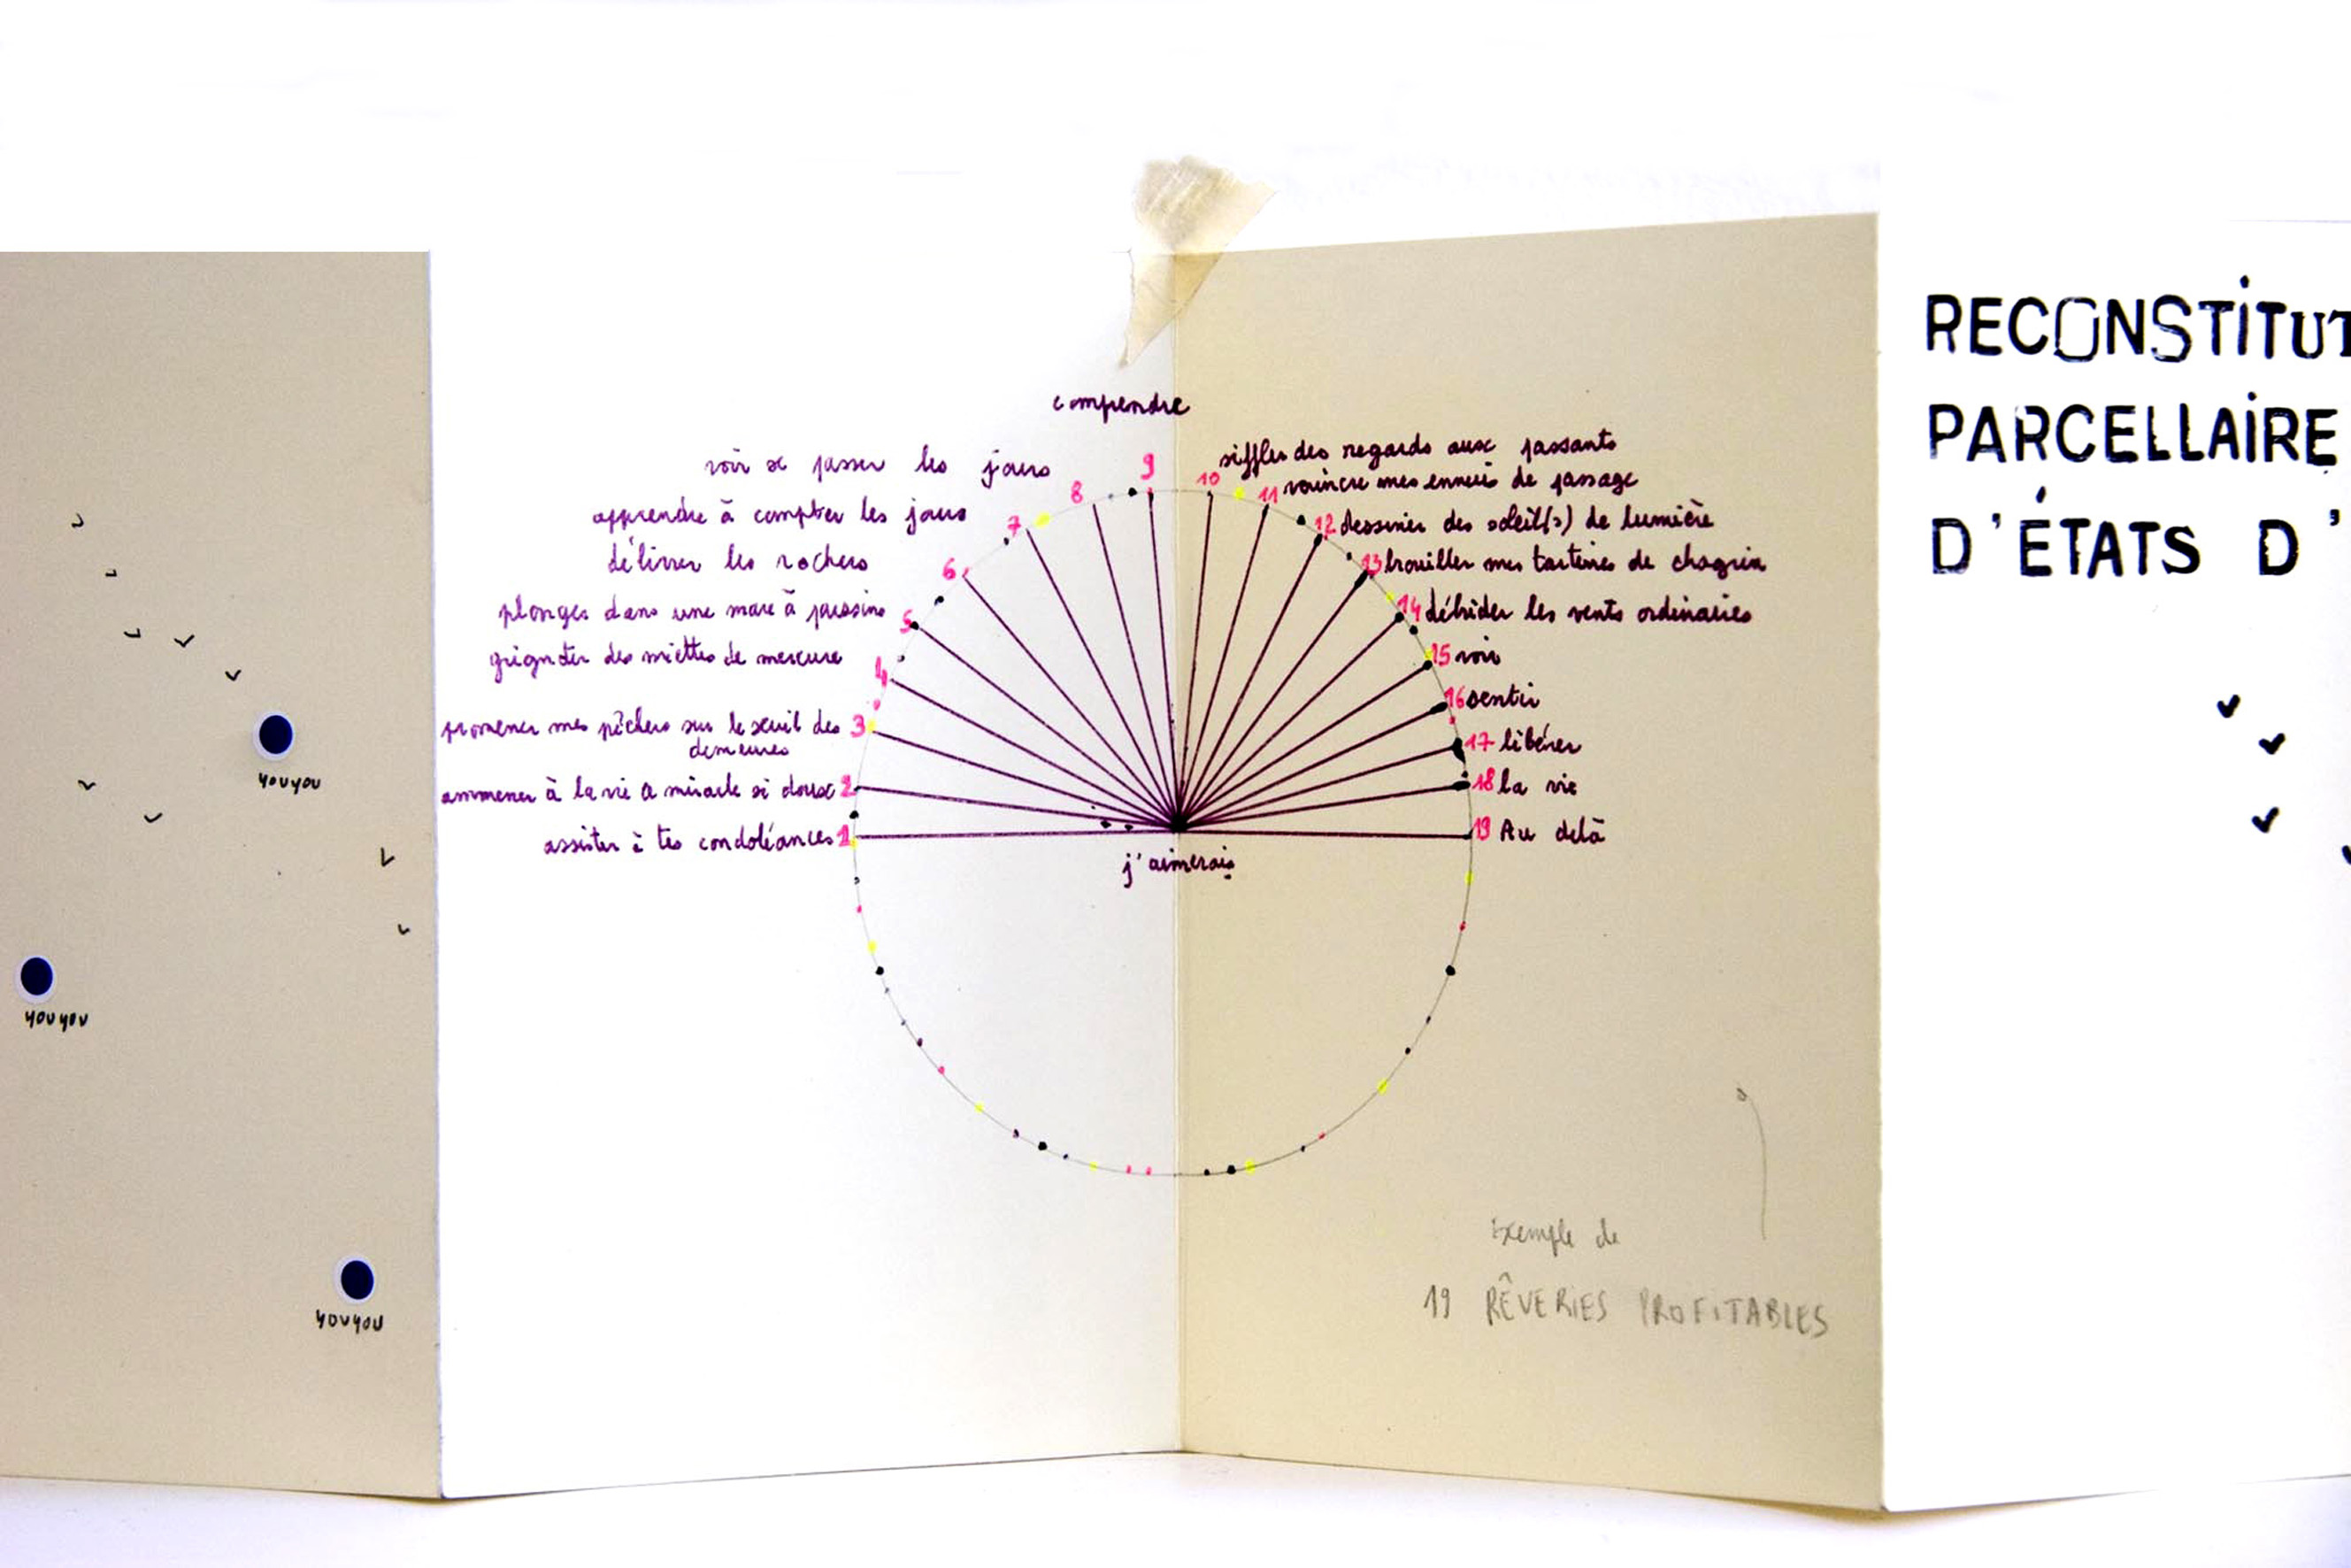 youyou
youyou
youyou
comprendre
9
voir se passer les jours
8
apprendre à compter les jours
7
délivrer les rochers
6
plonger dans une mare à poussins
5
grignoter des miettes de mercure
4
promener mes péchers sur le seuil des
demeures
3
ammener à la vie a miracle si doux
2
assister à tes condoléances
1
10 siffler des regards aux passants
11 vaincre mes ennuis de passage
12 dessiner des soleil(s) de lumière
13 brouiller mes tartines de chagrin
14 débrider les vents ordinaires
15 voir
16 sentir
17 libérer
18 la vie
19 Au delà
j'aimerais
Exemple de
19 RÊVERIES PROFITABLES
RECONSTITUT
PARCELLAIRE
D'ÉTATS D'